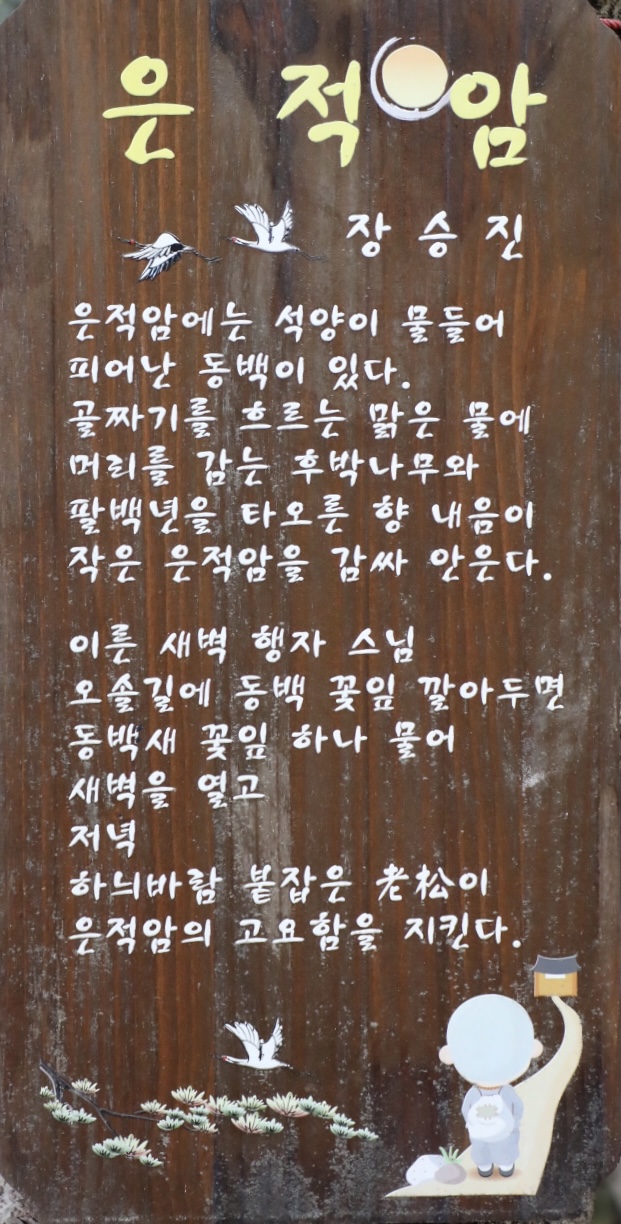 은적암
장승진
은적암에는 석양이 물들어
피어난 동백이 있다.
골짜기를 흐르는 맑은 물에
머리를 감는 후박나무와
팔백년을 타오른 향 내음이
작은 은적암을 감싸 안은다.
이른 새벽 행자 스님
오솔길에 동백 꽃잎 깔아두면
동백새 꽃잎 하나 물어
새벽을 열고
저녁
하늬바람 붙잡은 老松이
은적암의 고요함을 지킨다.